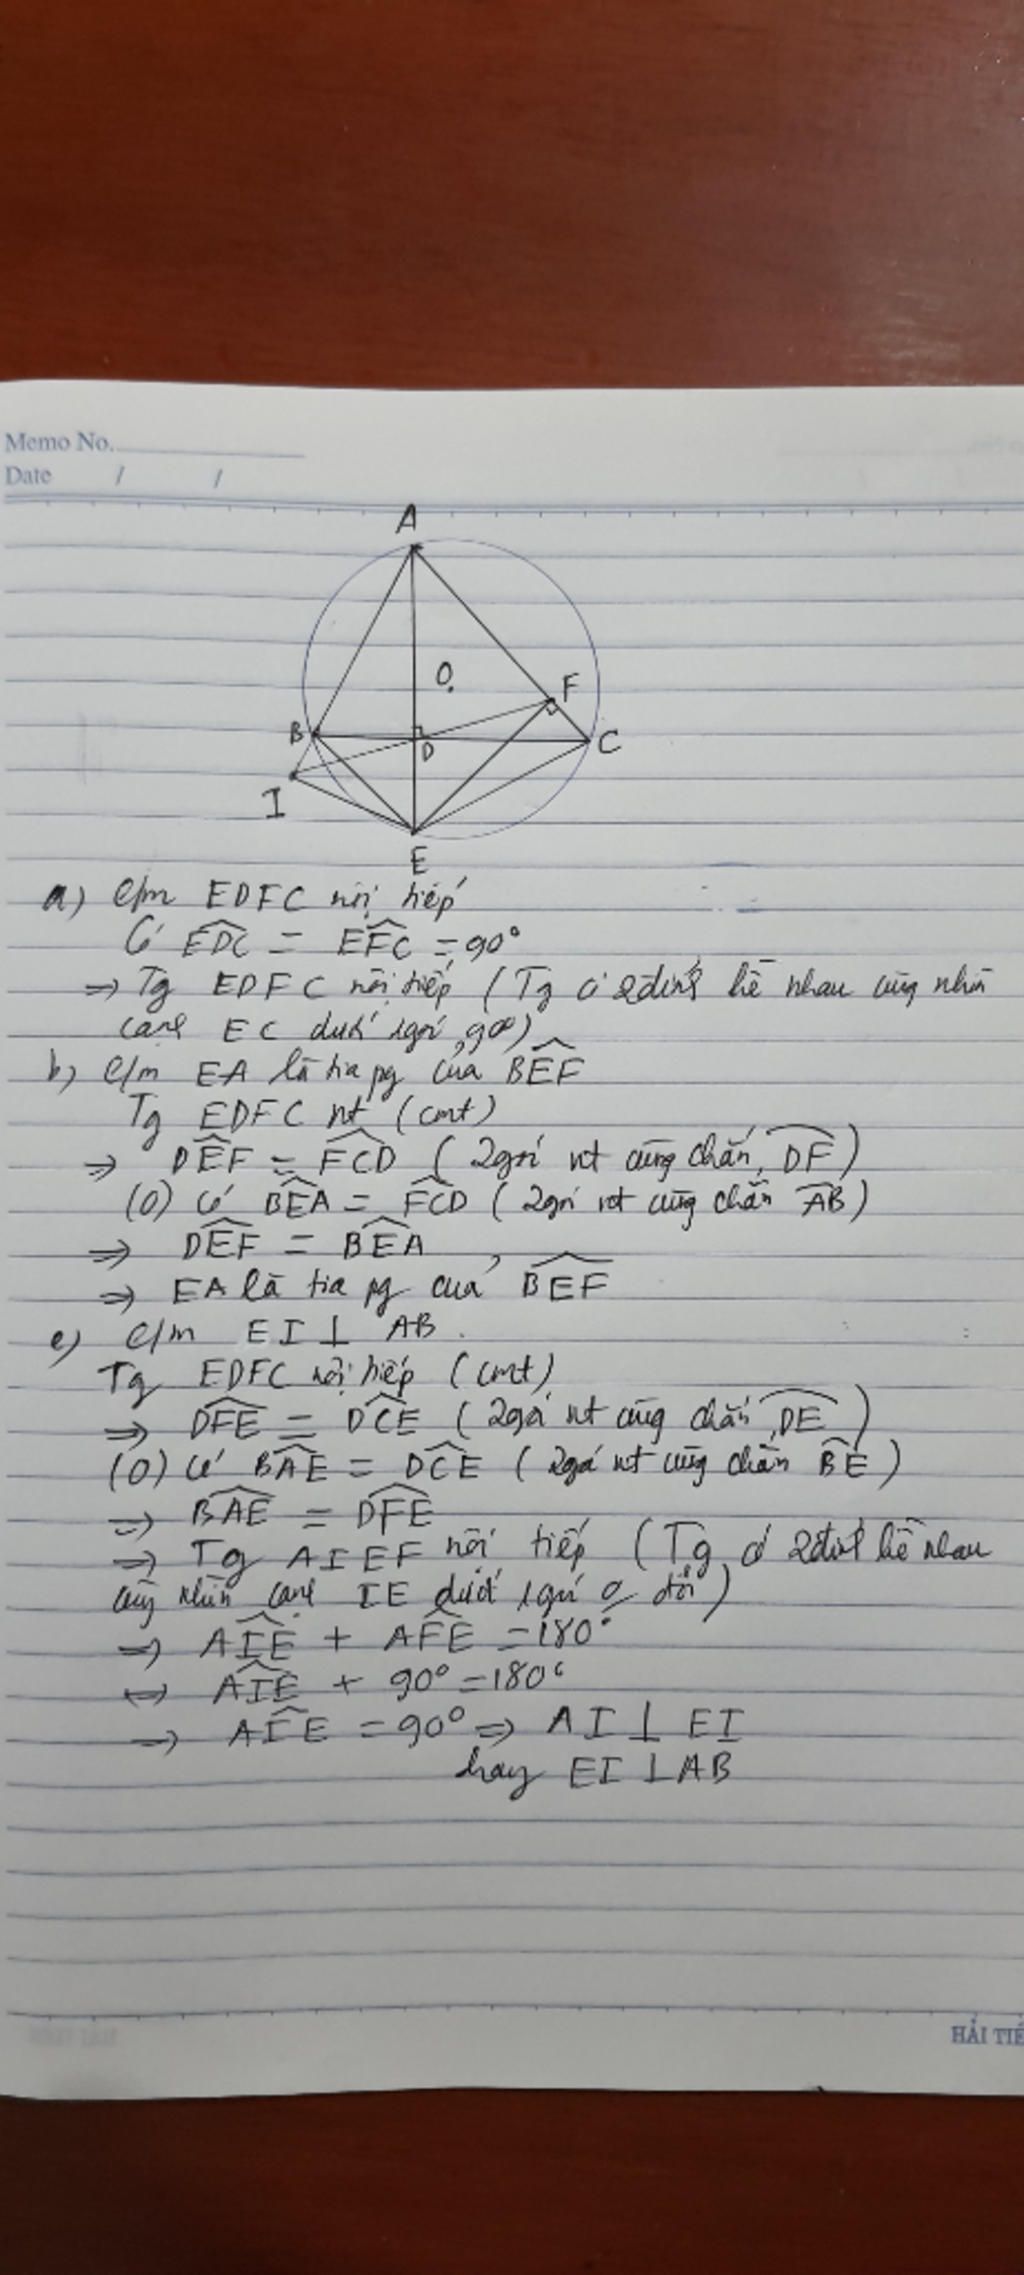 Memo No.
Date / /
A
O
F
B
D
C
I
E
a) c/m EDFC nội tiếp
Có EDC = EFC = 90°
=> Tg EDFC nội tiếp (Tg có 2 đỉnh kề nhau cùng nhìn
cạnh EC dưới 1 góc 90°)
b) c/m EA là tia pg của BEF
Tg EDFC nt (cmt)
=> DEF = FCD (2 góc nt cùng chắn DF)
(O) có BEA = FCD (2 góc nt cùng chắn AB)
=> DEF = BEA
=> EA là tia pg của BEF
c) c/m EI ⊥ AB.
Tg EDFC nội tiếp (cmt)
=> DFE = DCE (2 góc nt cùng chắn DE)
(O) có BAE = DCE (2 góc nt cùng chắn BE)
=> BAE = DFE
=> Tg AIEF nội tiếp (Tg có 2 đỉnh kề nhau
cùng nhìn cạnh IE dưới 1 góc đổi)
=> AIE + AFE = 180°
<=> AIE + 90° = 180°
=> AIE = 90° => AI ⊥ EI
hay EI ⊥ AB
HẢI TIẾ